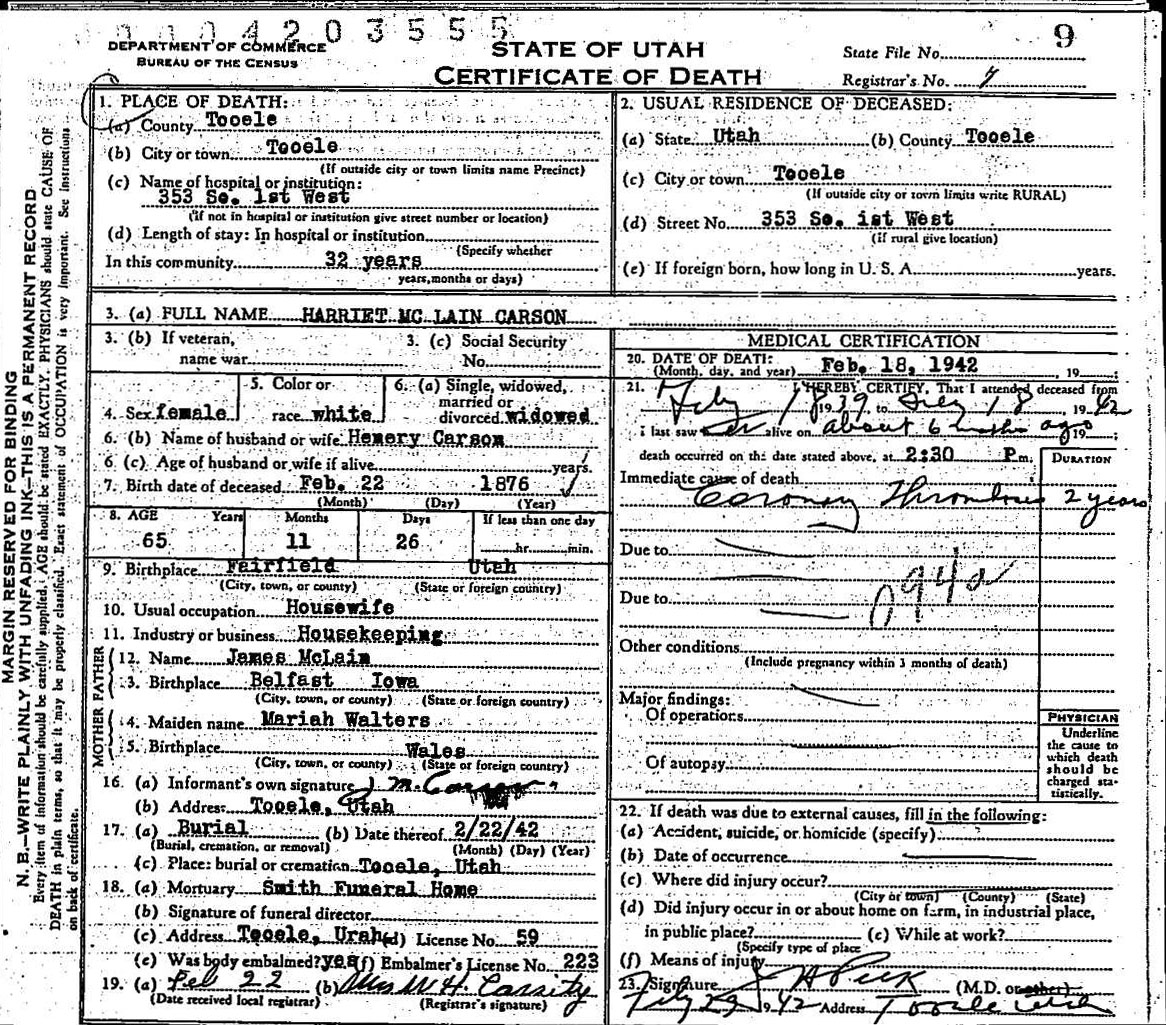 1104203555
9
DEPARTMENT OF COMMERCE
BUREAU OF THE CENSUS
STATE OF UTAH
CERTIFICATE OF DEATH
State File No.
Registrar's No. 7
MARGIN RESERVED FOR BINDING
N. B.—WRITE PLAINLY WITH UNFADING INK—THIS IS A PERMANENT RECORD
Every item of information should be carefully supplied. AGE should be stated EXACTLY. PHYSICIANS should state CAUSE OF
DEATH in plain terms, so that it may be properly classified. Exact statement of OCCUPATION is very important. See instructions
on back of certificate.
1. PLACE OF DEATH:
(a) County Tooele
(b) City or town Tooele
(If outside city or town limits name Precinct)
(c) Name of hospital or institution:
353 So. 1st West
(If not in hospital or institution give street number or location)
(d) Length of stay: In hospital or institution
(Specify whether
In this community 32 years
years, months or days)
2. USUAL RESIDENCE OF DECEASED:
(a) State Utah (b) County Tooele
(c) City or town Tooele
(If outside city or town limits write RURAL)
(d) Street No. 353 So. ist West
(If rural give location)
(e) If foreign born, how long in U. S. A. years.
3. (a) FULL NAME HARRIET MC LAIN CARSON
3. (b) If veteran,
name war
3. (c) Social Security
No.
4. Sex female
5. Color or
race white
6. (a) Single, widowed,
married or
divorced widowed
6. (b) Name of husband or wife Hemery Carson
6. (c) Age of husband or wife if alive years.
7. Birth date of deceased Feb. 22 1876
(Month) (Day) (Year)
8. AGE Years Months Days If less than one day
65 11 26 hr. min.
9. Birthplace Fairfield Utah
(City, town, or county) (State or foreign country)
10. Usual occupation Housewife
11. Industry or business Housekeeping
FATHER
12. Name James McLain
3. Birthplace Belfast Iowa
(City, town, or county) (State or foreign country)
MOTHER
4. Maiden name Mariah Walters
5. Birthplace Wales
(City, town, or county) (State or foreign country)
16. (a) Informant's own signature J M. Carson
(b) Address Tooele, Utah
17. (a) Burial (b) Date thereof 2/22/42
(Burial, cremation, or removal) (Month) (Day) (Year)
(c) Place: burial or cremation Tooele, Utah
18. (a) Mortuary Smith Funeral Home
(b) Signature of funeral director
(c) Address Tooele, Urah (d) License No. 59
(e) Was body embalmed? yes (f) Embalmer's License No. 223
19. (a) Feb 22 (b) Mrs W H. Cassity
(Date received local registrar) (Registrar's signature)
MEDICAL CERTIFICATION
20. DATE OF DEATH:
(Month, day, and year) Feb. 18, 1942, 19
21. I HEREBY CERTIFY, That I attended deceased from
Feby 18 1939 to Feby 18, 1942
I last saw her alive on about 6 months ago 19 ;
death occurred on the date stated above, at 2:30 P m.
DURATION
Immediate cause of death
Coronary Thrombosis 2 years
Due to
Due to
094a
Other conditions
(Include pregnancy within 3 months of death)
Major findings:
Of operations
Of autopsy
PHYSICIAN
Underline
the cause to
which death
should be
charged sta-
tistically.
22. If death was due to external causes, fill in the following:
(a) Accident, suicide, or homicide (specify)
(b) Date of occurrence
(c) Where did injury occur?
(City or town) (County) (State)
(d) Did injury occur in or about home on farm, in industrial place,
in public place? (e) While at work?
(Specify type of place
(f) Means of injury
23. Signature J H Peck (M.D. or other)
Feby 29 1942 Address Tooele Utah